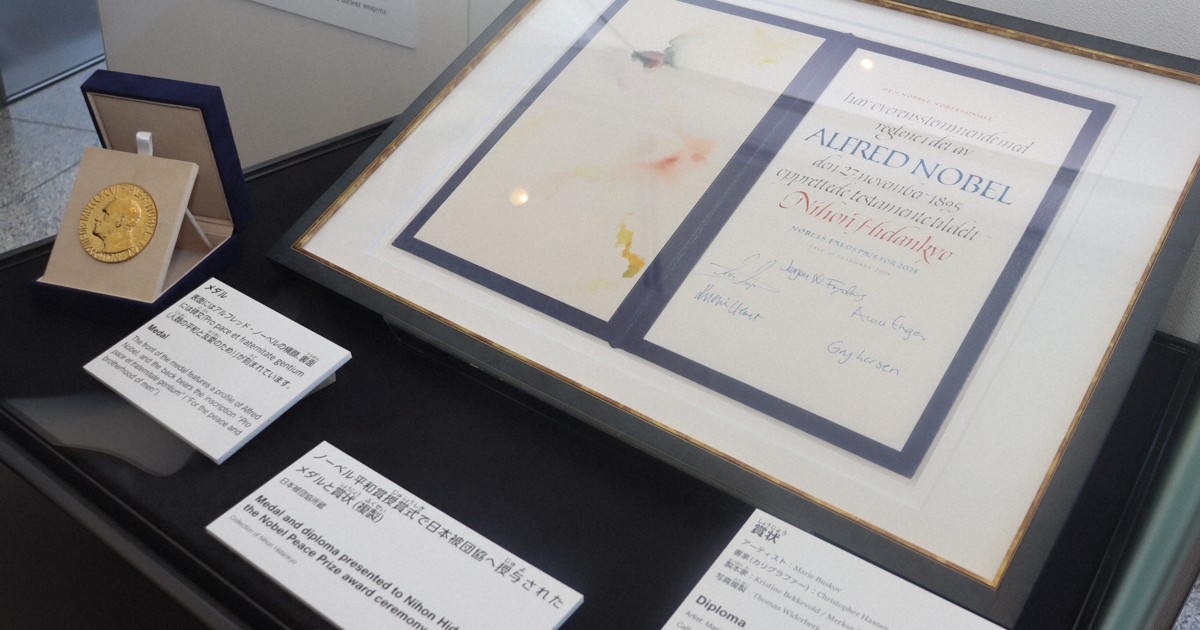 nuclear weapons.
DEN NORSKE NOBELKOMITE
har overensstemmende med
reglene i det av
ALFRED NOBEL
den 27. november 1895
opprettede testamente tildelt
Nihon Hidankyo
NOBELS FREDSPRIS FOR 2024
メダル
表面にはアルフレッド・ノーベルの横顔、裏面
には碑文「Pro pace et fraternitate gentium
(人類の平和と友愛のため)」が刻まれています。
Medal
The front of the medal features a profile of Alfred
Nobel, and the back bears the inscription "Pro
pace et fraternitate gentium" ("For the peace and
brotherhood of men").
ノーベル平和賞授賞式で日本被団協へ授与された
メダルと賞状(複製)
日本被団協所蔵
Medal and diploma presented to Nihon Hid
the Nobel Peace Prize award ceremony
Collection of Nihon Hidankyo
しょうじょう
賞状
アーティスト:Marie Buskov
書家(カリグラファー):Christopher Haanes
製本家:Kristine Bekkevold / Merkur
写真複製:Thomas Widerberg
Diploma
Artist: Mar